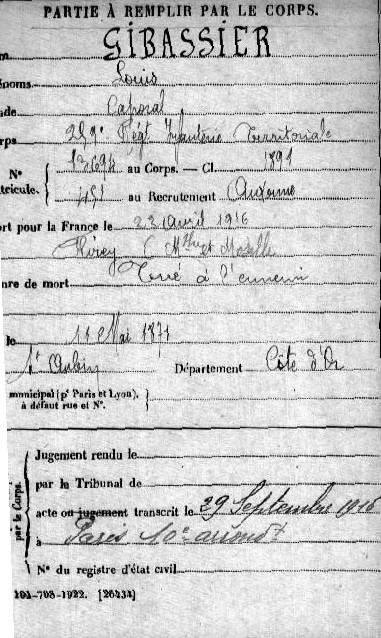 PARTIE À REMPLIR PAR LE CORPS.
GIBASSIER
énoms. Louis
ade Caporal
rps 259e Régt Infanterie Territoriale
N° 12694 au Corps. — Cl. 1891
tricule. 451 au Recrutement Auxonne
ort pour la France le 22 Avril 1916
Meurthe et Moselle
nre de mort Tué à l'ennemi
le 11 Mai 1871
St Aubin Département Côte d'Or
municipal (pr Paris et Lyon),
à défaut rue et N°.
par le Corps.
Jugement rendu le
par le Tribunal de
acte ou jugement transcrit le 29 Septembre 1916
à Paris 10e arrondt
N° du registre d'état civil
101-708-1922. [26434]